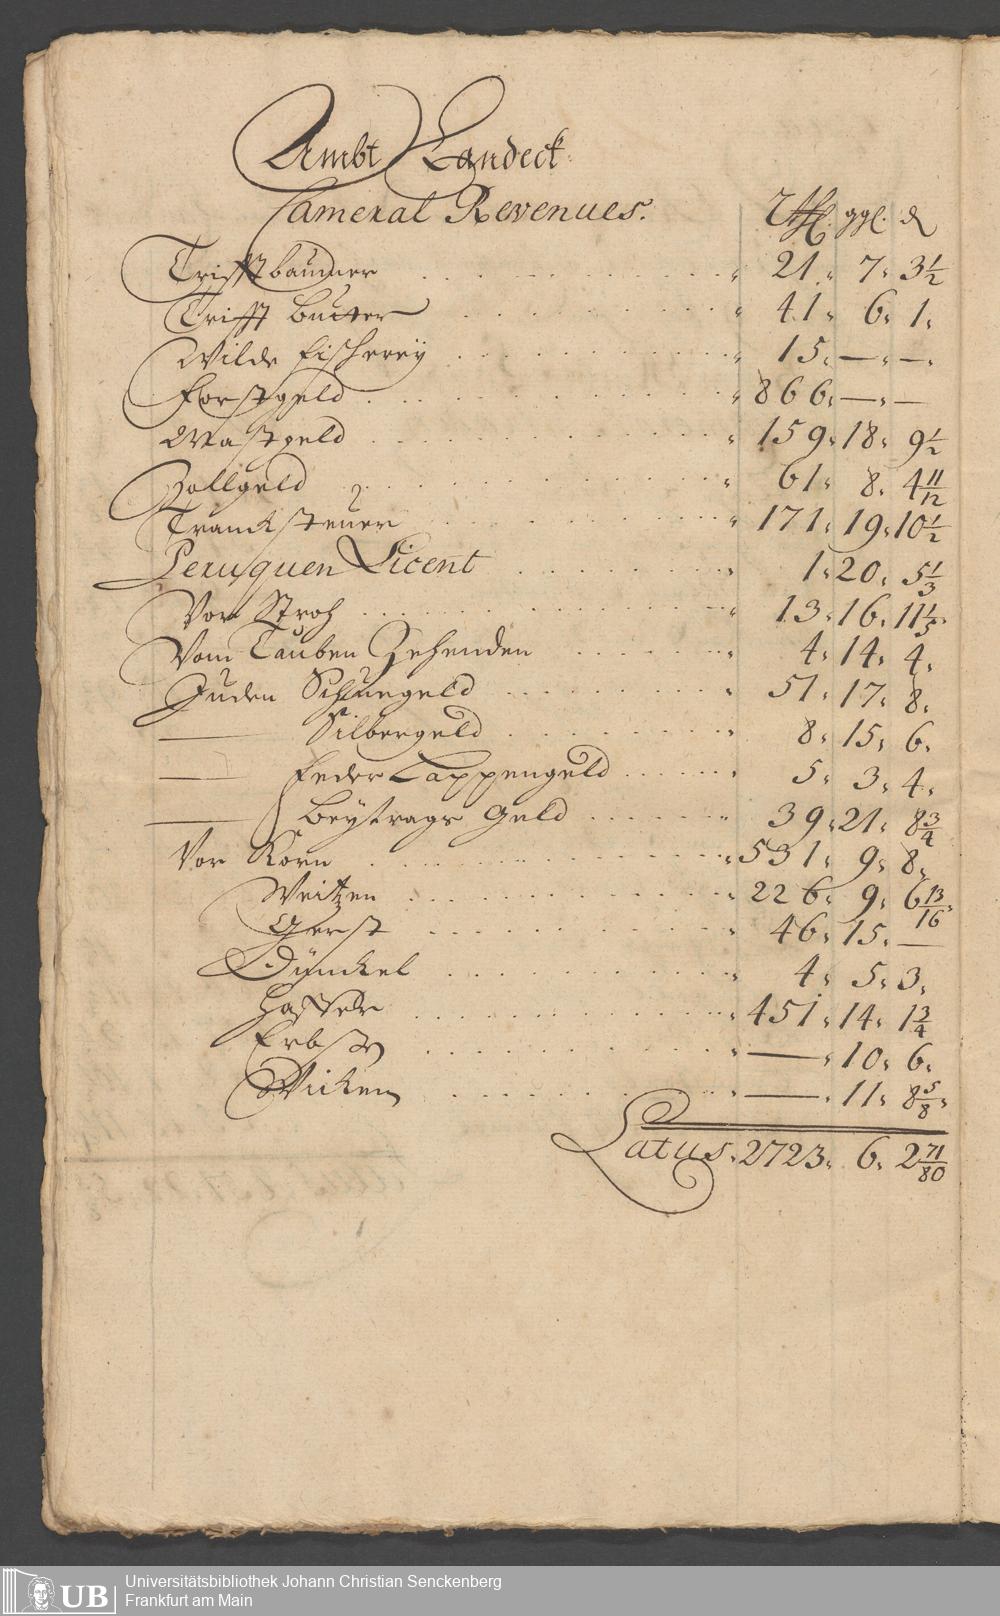 Ambt Landeck
Cameral Revenues. Rthl. ggl. d
Trifftbaumer 21. 7. 3 1/2
Trifft Butter 41. 6. 1.
Wilde Fischerey 15. — . — .
Forstgeld 866. — . —
Mastgeld 159. 18. 9 1/2
Zollgeld 61. 8. 4 11/12
Tranksteuer 171. 19. 10 1/2
Peruquen Licent 1. 20. 5 1/3
Vor Stroh 13. 16. 11 1/5
Vom Tauben Zehenden 4. 14. 4.
Juden 51. 17. 8.
— Silbergeld 8. 15. 6.
— Feder Lappengeld 5. 3. 4.
— Beytrags Geld 39. 21. 8 3/4
Vor Korn 531. 9. 8.
Weitzen 226. 9. 6 13/16
Gerst 46. 15. —
Dünckel 4. 5. 3.
Haffer 451. 14. 1 3/4
Erbsen — . 10. 6.
Wicken — . 11. 8 5/8.
Latus. 2723. 6. 2 71/80
UB Universitätsbibliothek Johann Christian Senckenberg
Frankfurt am Main